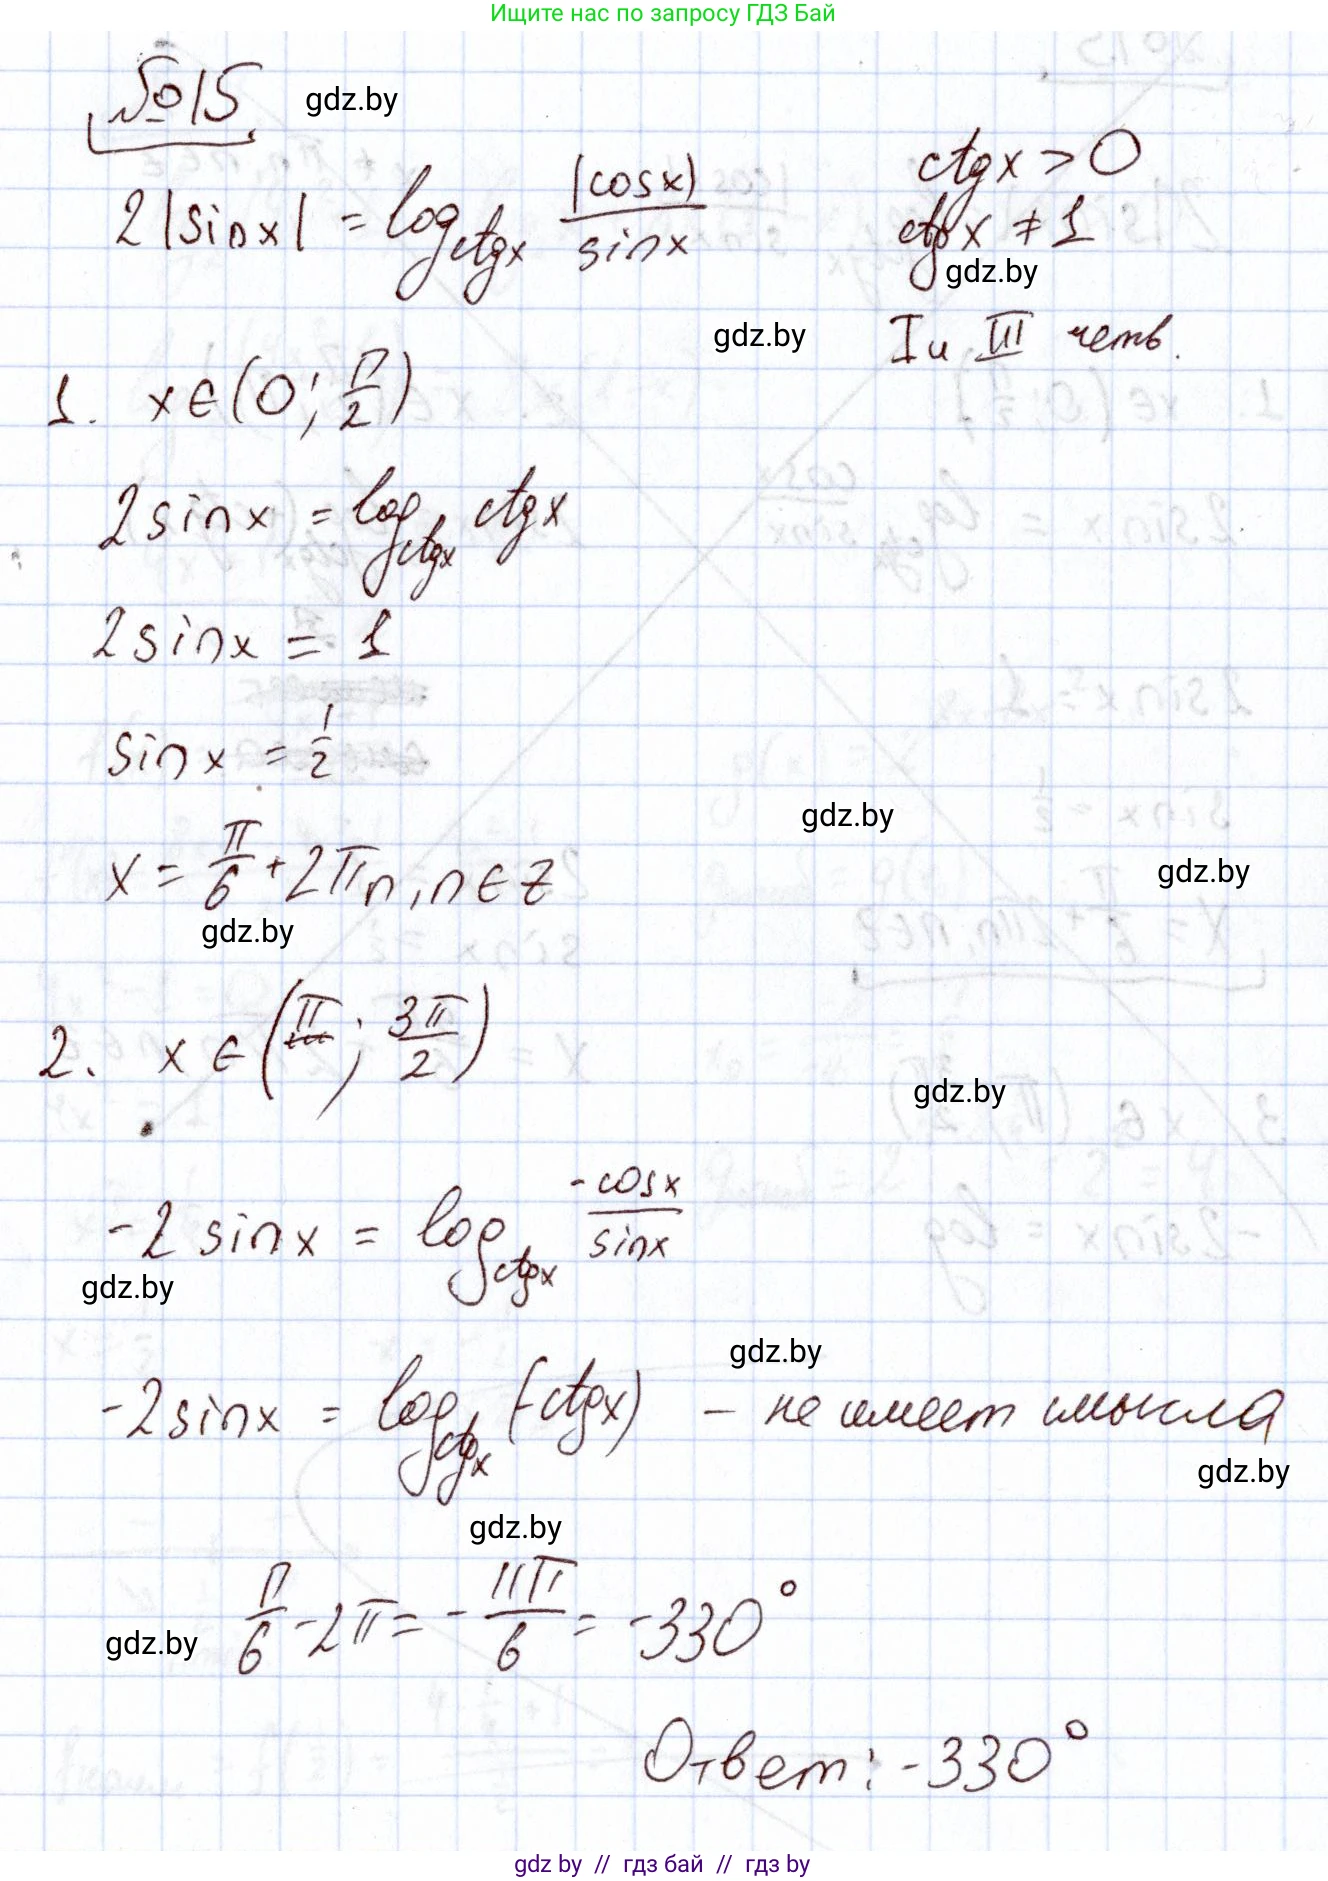 Ищите нас по запросу ГДЗ Бай
№15 gdz.by
2|sinx| = log_ctgx |cosx|/sinx
ctgx > 0
ctgx ≠ 1
gdz.by
I и III четв.
gdz.by
1. x∈(0; π/2)
2sinx = log_ctgx ctgx
2sinx = 1
sinx = 1/2
gdz.by
gdz.by
x = π/6 + 2πn, n∈Z
gdz.by
2. x∈(π; 3π/2)
gdz.by
-2sinx = log_ctgx -cosx/sinx
gdz.by
gdz.by
-2sinx = log_ctgx (-ctgx) - не имеет смысла
gdz.by
gdz.by
π/6 - 2π = -11π/6 = -330°
gdz.by
Ответ: -330°
gdz by // гдз бай // гдз by